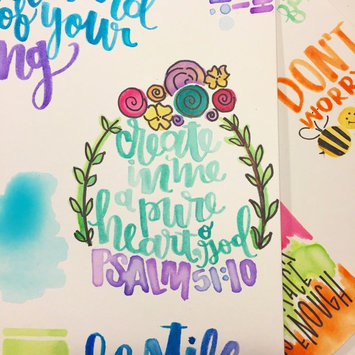 of your
create
in me
a pure
heart o god
PSALM 51:10
DON'T
WORRY
ENOUGH